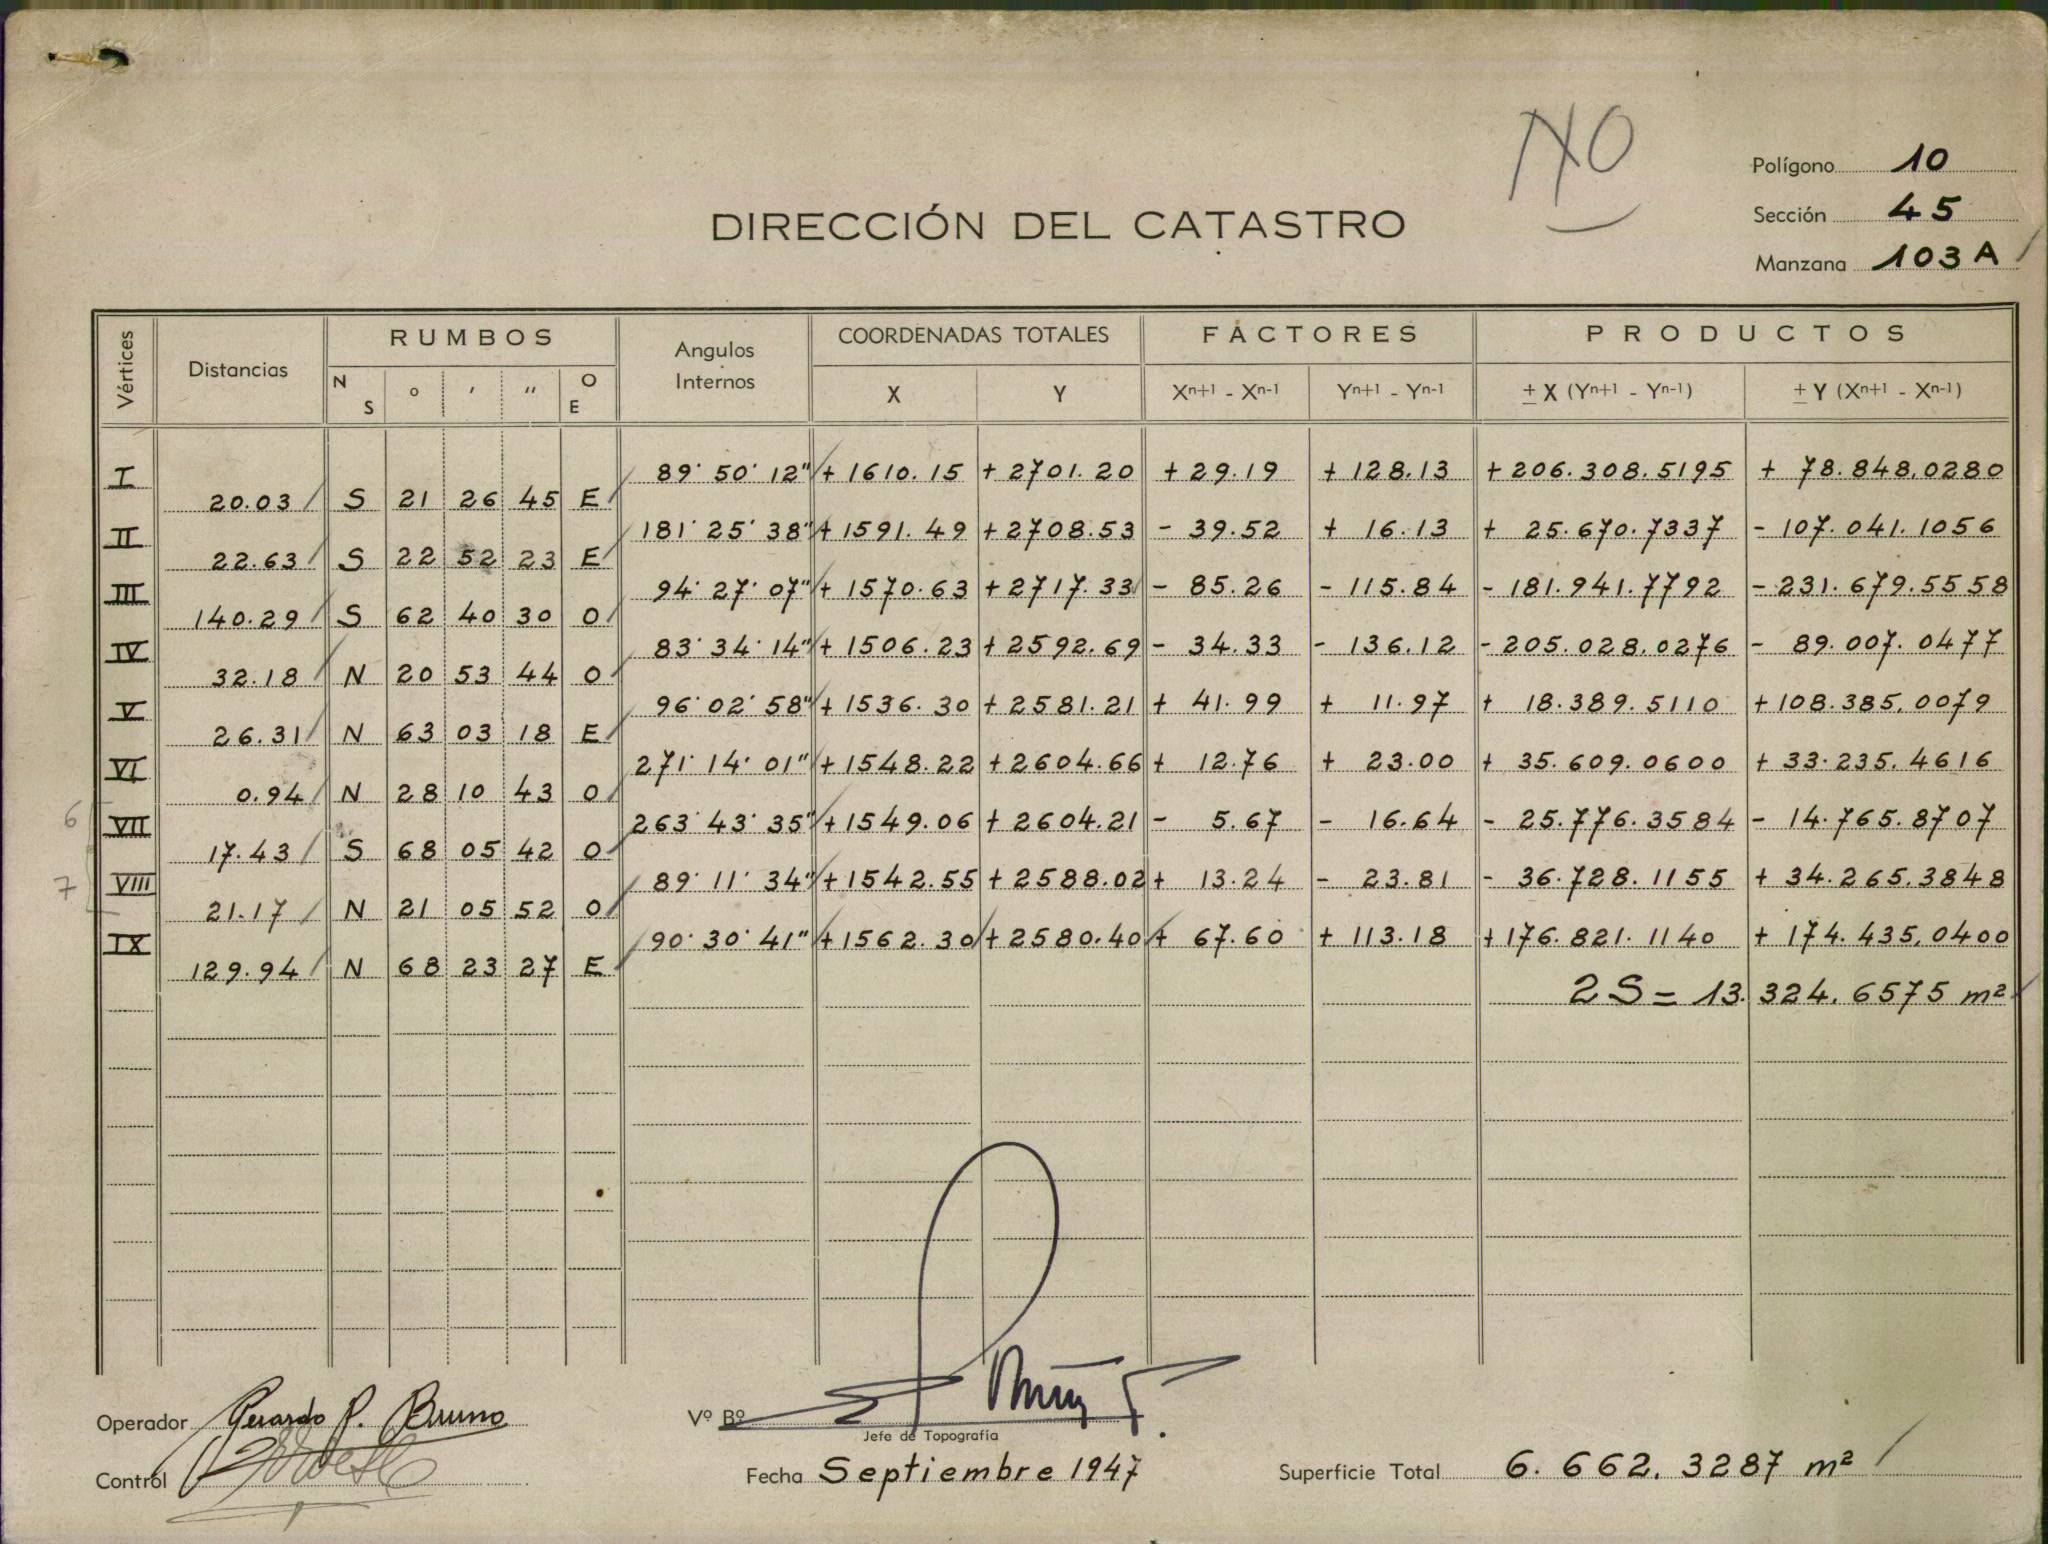 NO
Polígono 10
Sección 45
DIRECCIÓN DEL CATASTRO
Manzana 103 A
Vértices Distancias RUMBOS Angulos Internos COORDENADAS TOTALES FACTORES PRODUCTOS
N S ° ' '' O E X Y Xn+1 - Xn-1 Yn+1 - Yn-1 ± X (Yn+1 - Yn-1) ± Y (Xn+1 - Xn-1)
I 89° 50' 12" + 1610.15 + 2701.20 + 29.19 + 128.13 + 206.308.5195 + 78.848.0280
20.03 S 21 26 45 E
II 181° 25' 38" + 1591.49 + 2708.53 - 39.52 + 16.13 + 25.670.7337 - 107.041.1056
22.63 S 22 52 23 E
III 94° 27' 07" + 1570.63 + 2717.33 - 85.26 - 115.84 - 181.941.7792 - 231.679.5558
140.29 S 62 40 30 O
IV 83° 34' 14" + 1506.23 + 2592.69 - 34.33 - 136.12 - 205.028.0276 - 89.007.0477
32.18 N 20 53 44 O
V 96° 02' 58" + 1536.30 + 2581.21 + 41.99 + 11.97 + 18.389.5110 + 108.385.0079
26.31 N 63 03 18 E
VI 271° 14' 01" + 1548.22 + 2604.66 + 12.76 + 23.00 + 35.609.0600 + 33.235.4616
0.94 N 28 10 43 O
6 VII 263° 43' 35" + 1549.06 + 2604.21 - 5.67 - 16.64 - 25.776.3584 - 14.765.8707
17.43 S 68 05 42 O
7 VIII 89° 11' 34" + 1542.55 + 2588.02 + 13.24 - 23.81 - 36.728.1155 + 34.265.3848
21.17 N 21 05 52 O
IX 90° 30' 41" + 1562.30 + 2580.40 + 67.60 + 113.18 + 176.821.1140 + 174.435.0400
129.94 N 68 23 27 E
2S = 13.324.6575 m²
Operador Gerardo P. Bruno
Vº Bº
Jefe de Topografía
Control
Fecha Septiembre 1947
Superficie Total 6.662.3287 m²